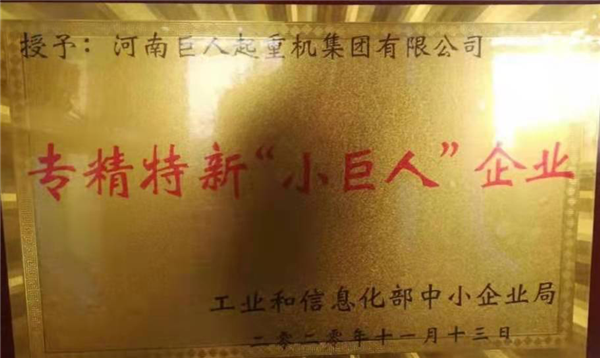 授予：河南巨人起重机集团有限公司
专精特新“小巨人”企业
工业和信息化部中小企业局
二零二零年十一月十三日